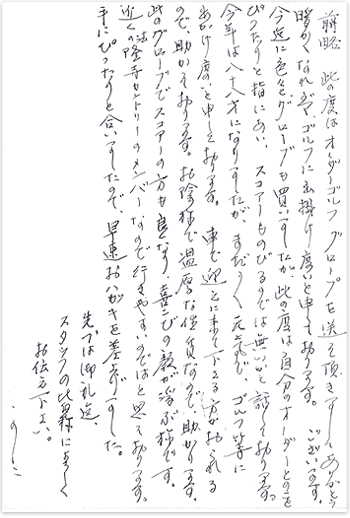 前略 此の度はオーダーゴルフグローブを送って頂きましてありがとう
ございます。
暖かくなればゴルフに出掛け度いと申して居ります。
今迄に色々グローブも買いましたが此の度は自分のオーダーとのことを
ぴったりと指にあい、スコアーものびるのでは無いかと話して居ります。
今年は八十八才になりましたが、まだまだ元気で、ゴルフ等に
出かけ度いと申して居ります。車で迎えに来て下さる方が居られる
ので、助かって居ります。お陰様で温厚な性質なので助かります。
此のグローブでスコアーの方も良くなり、喜びの顔が浮ぶ様です。
近くの法隆寺カントリーのメンバーなので行きやすいのではと思って居ります。
手にぴったりと合いましたので、早速おハガキを差上げました。
先づは御礼迄、
スタッフの皆様によろしく
お伝え下さい。